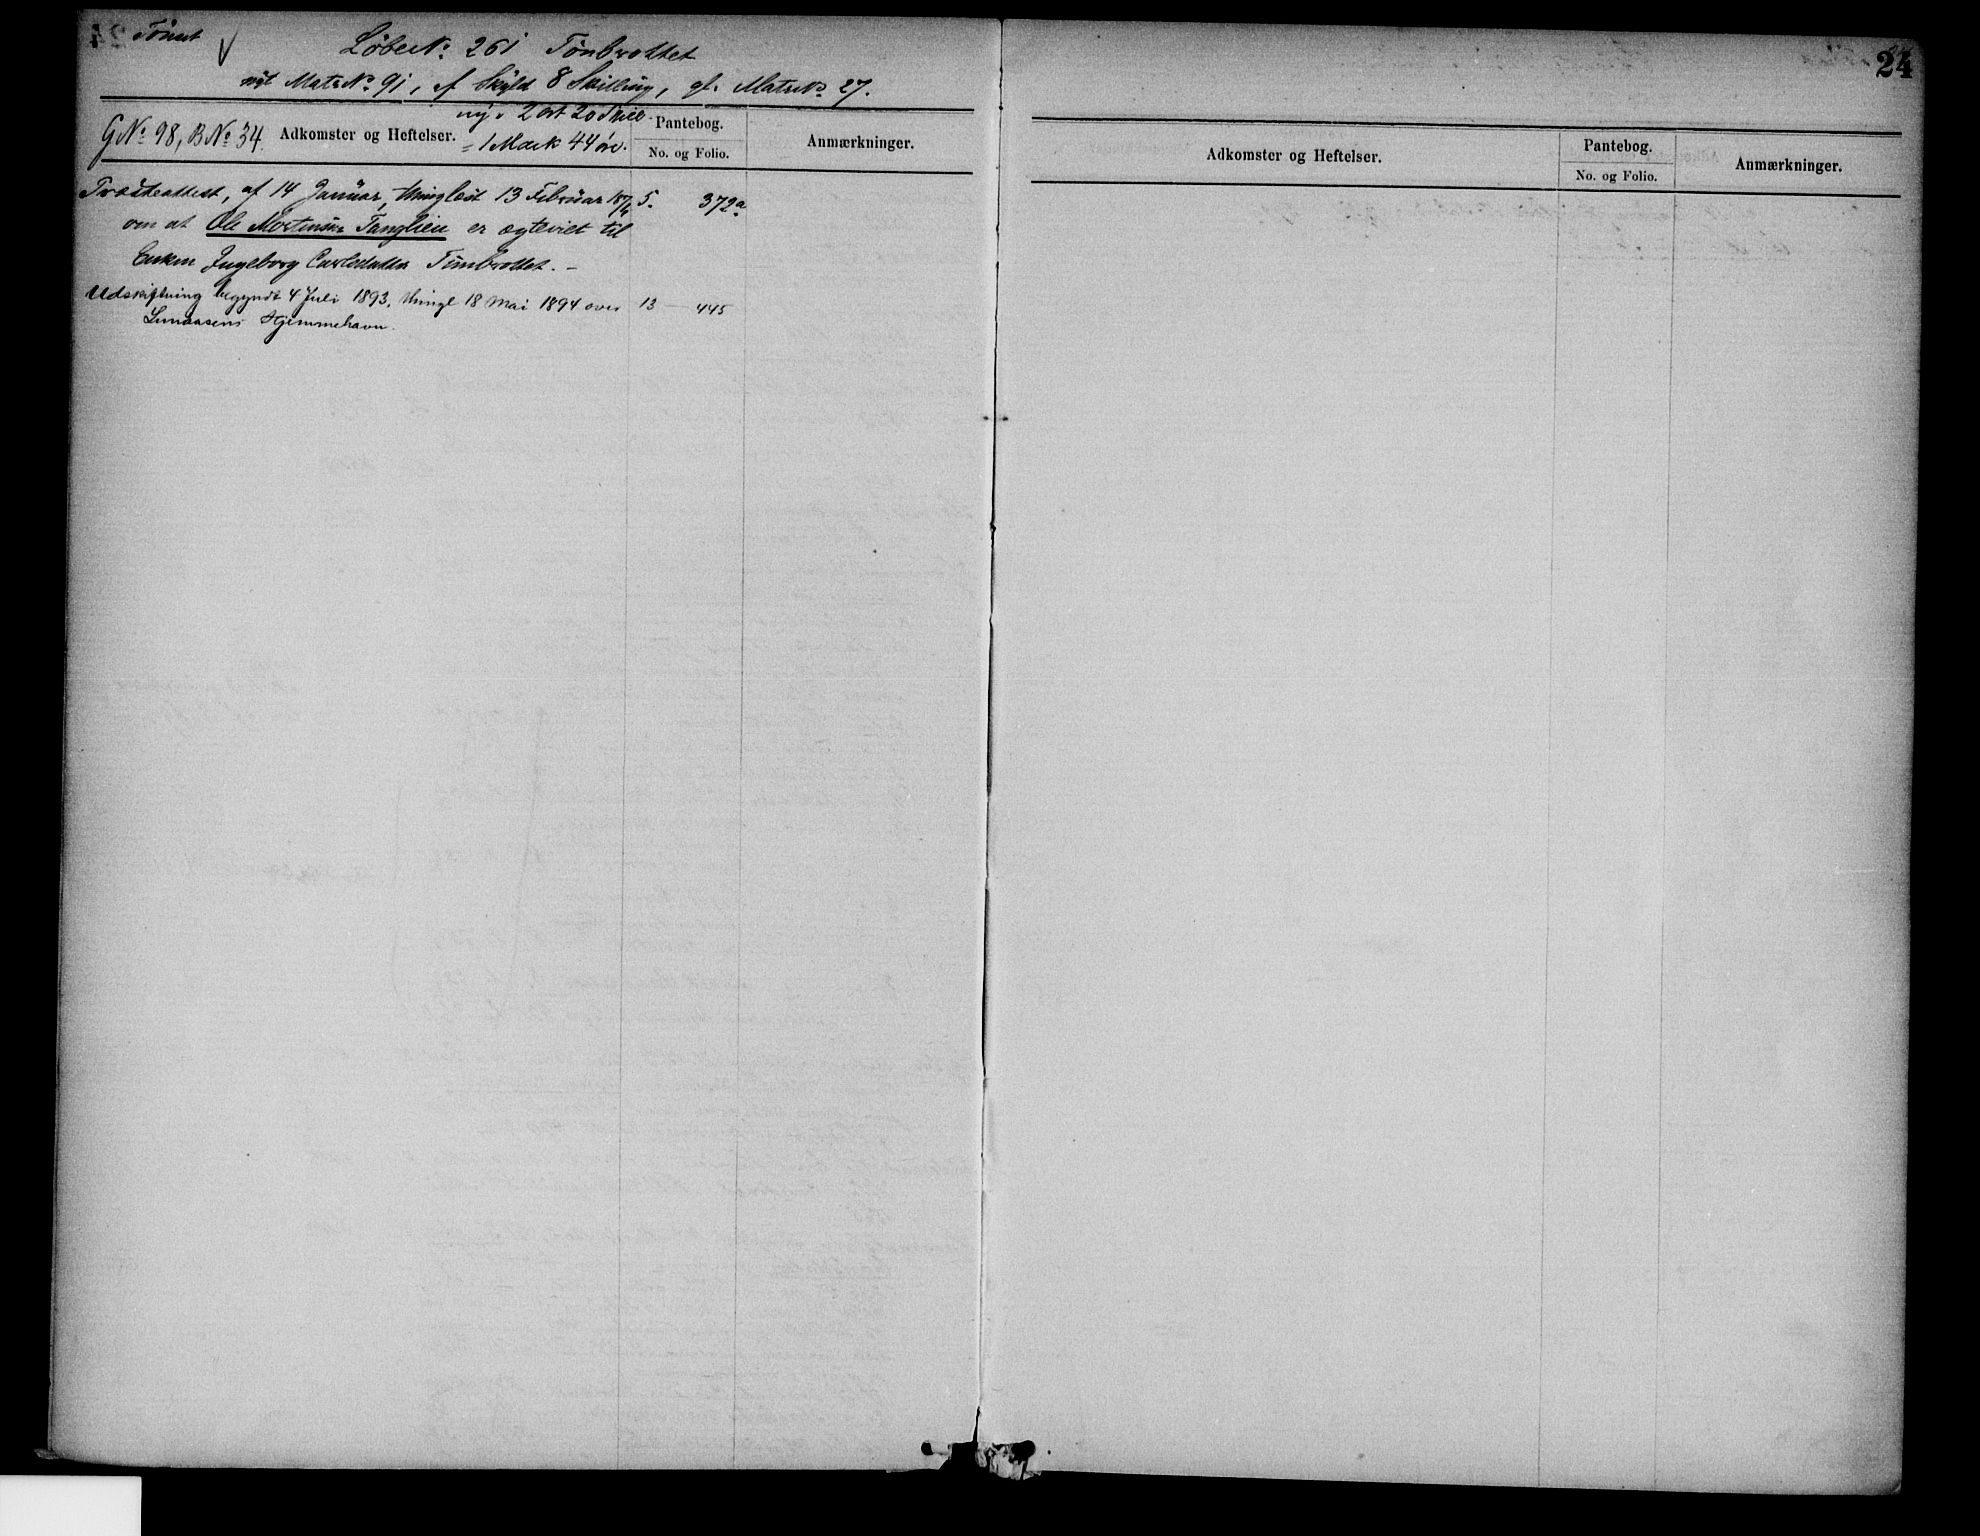 Tönset
LöbeNo. 261 Tönbrottet
nyt MatrNo. 91, af Skyld 8 Skilling, gl. MatrNo 27.
ny " 2 ort 20 Skill
GNo. 98, BNo. 34 Adkomster og Heftelser. = 1 Mark 44 öre.
Pantebog.
No. og Folio.
Anmærkninger.
af 14 Januar, thinglæst 13 Februar 5. 372a
om at Ole Mortensen Tanglien er ægteviet til
Enken Ingeborg Carlsdatter Tönbrottet. –
Udskiftning begyndt 4 Juli 1893, thingl 18 Mai 1894 over 13 445
Hjemmehavn.
24
Adkomster og Heftelser.
Pantebog.
No. og Folio.
Anmærkninger.